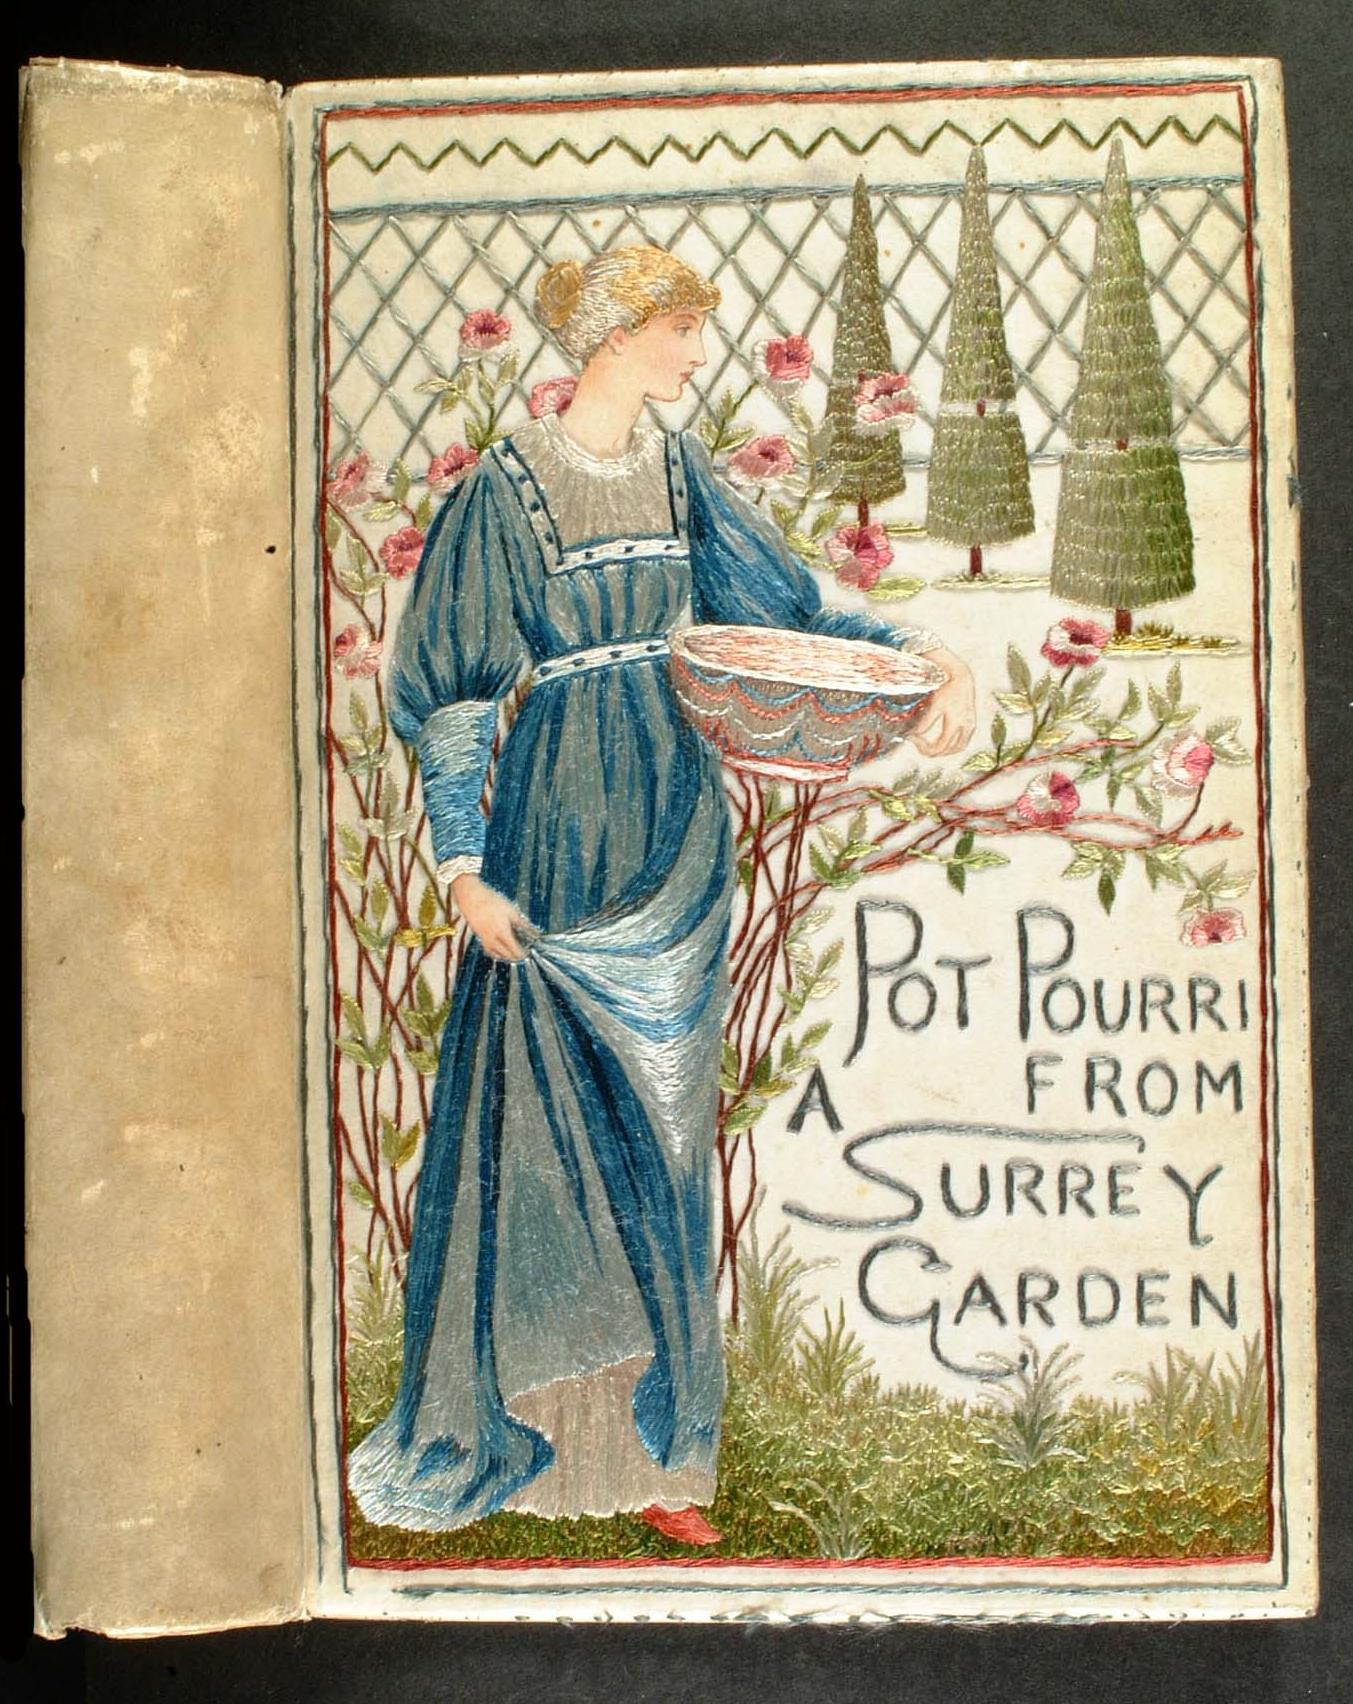 POT POURRI
FROM
A
SURREY
GARDEN